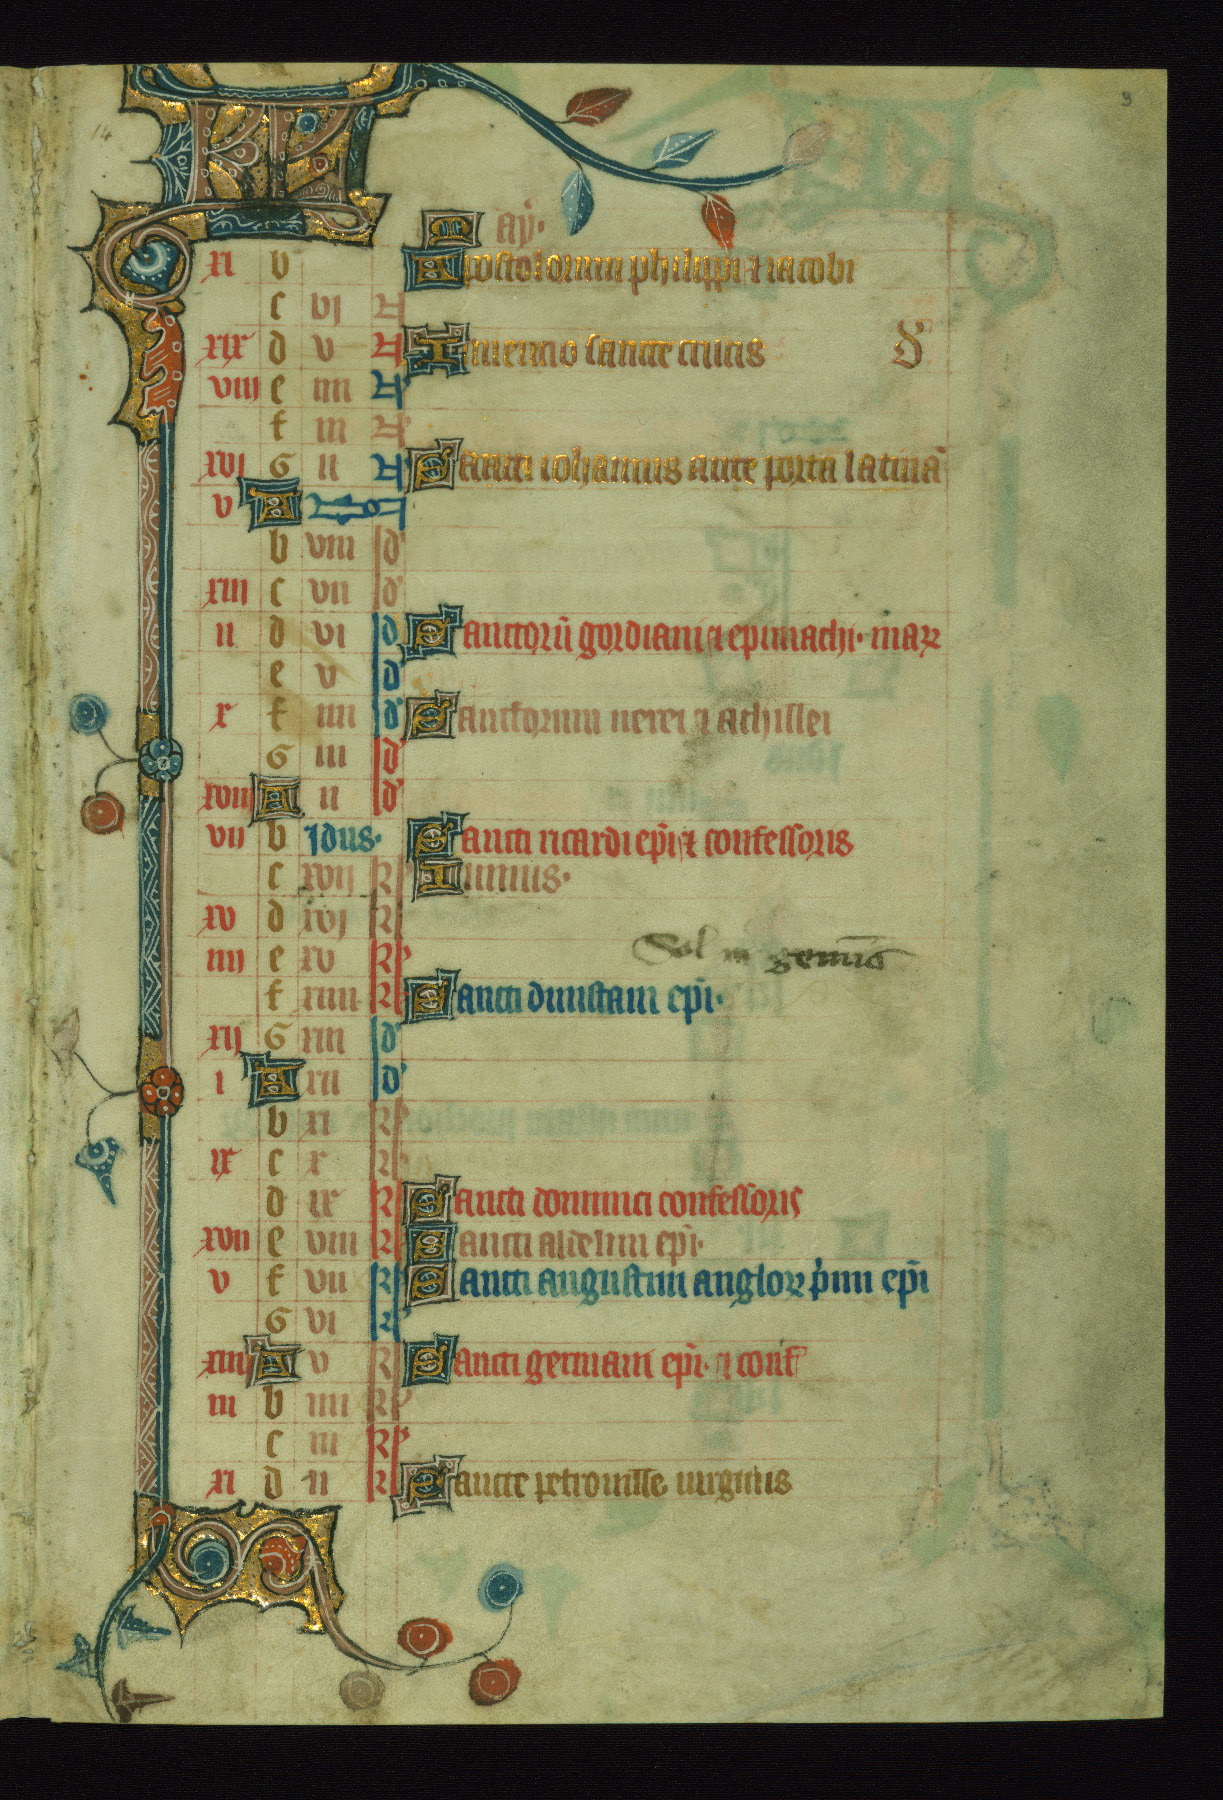 3
14
KL
May.
xi b Apostolorum philippi ⁊ iacobi
c vi N
xix d v N Inuencio sancte crucis
viii e iiii N
f iii N
xvi G ii N Sancti iohannis ante portã latinã
v A
b viii Id'
xiii c vii Id'
ii d vi Id' Sanctorũ gordiani ⁊ epimachi. marꝛ
e v Id'
x f iiii Id' Sanctorum nerei ⁊ achillei
G iii Id'
xviii A ii Id'
vii b Idus. Sancti ricardi ep̃i ⁊ confessoris
c xvij kl' Iunius.
xv d xvj kl'
iiii e xv kl' Sol in geminis
f xiiii kl' Sancti dunstani ep̃i.
xij G xiii kl'
i A xii kl'
b xi kl'
ix c x kl'
d ix kl' Sancti dominici confessoris
xvii e viii kl' Sancti aldelmi ep̃i.
v f vii kl' Sancti augustini angloꝝ p̃mi ep̃i
G vi kl'
xiiii A v kl' Sancti germani ep̃i. ⁊ conf
iii b iiii kl'
c iii kl'
xi d ii kl' Sancte petronille uirginis